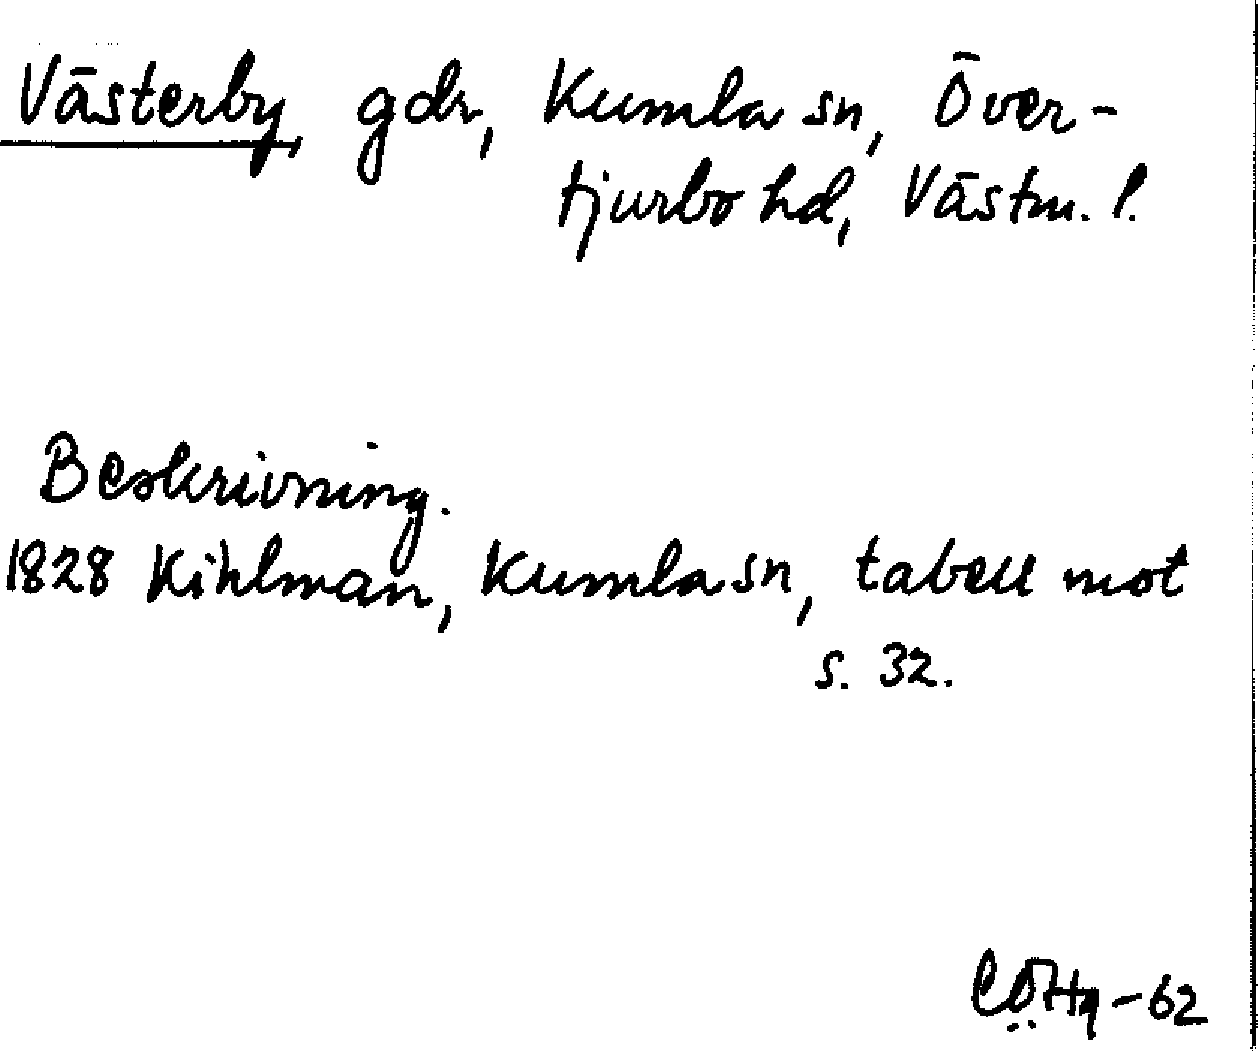 Västerby, gdr, Kumla sn, Över-
tjurbo hd, Västm. l.
Beskrivning.
1828 Kihlman, Kumla sn, tabell mot
s. 32.
-62